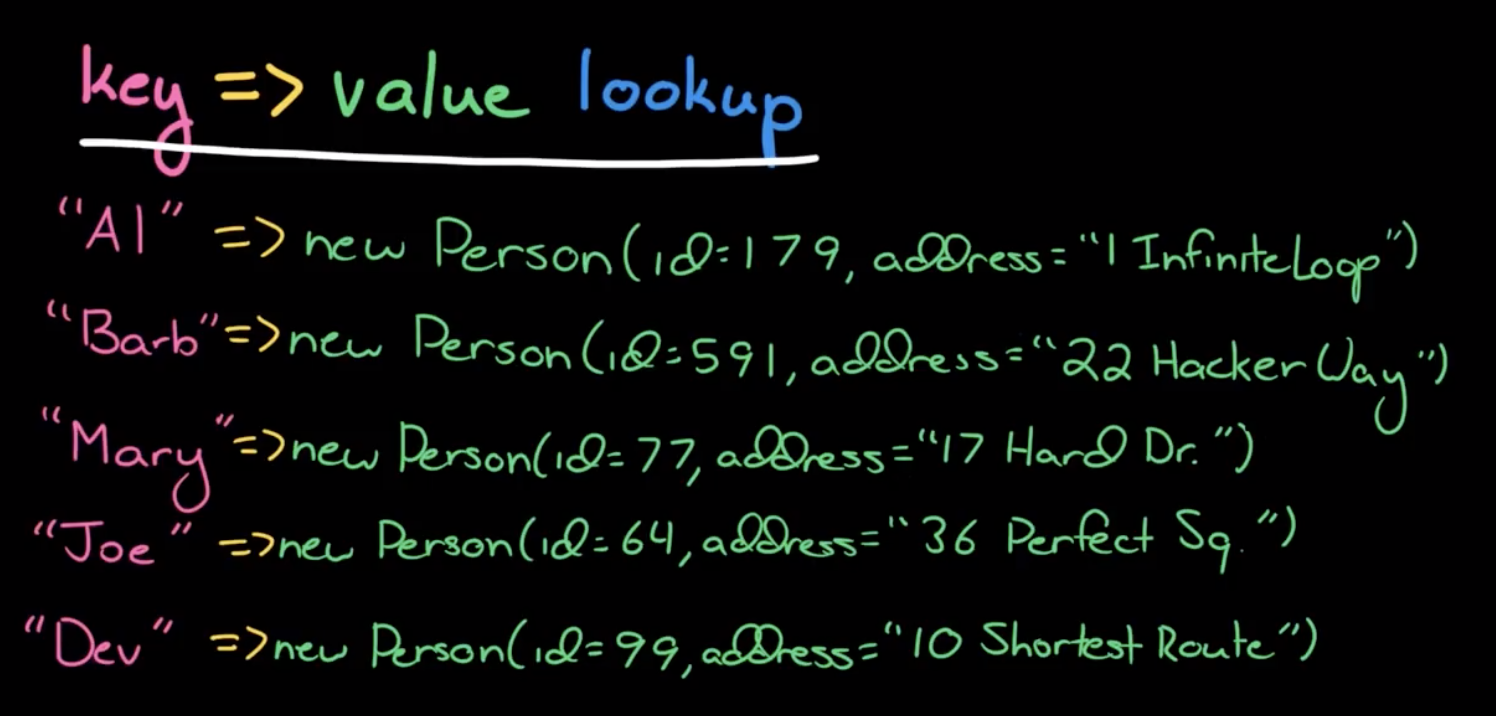 key => value lookup
"Al" => new Person(id=179, address="1 Infinite Loop")
"Barb" => new Person(id=591, address="22 Hacker Way")
"Mary" => new Person(id=77, address="17 Hard Dr.")
"Joe" => new Person(id=64, address="36 Perfect Sq.")
"Dev" => new Person(id=99, address="10 Shortest Route")